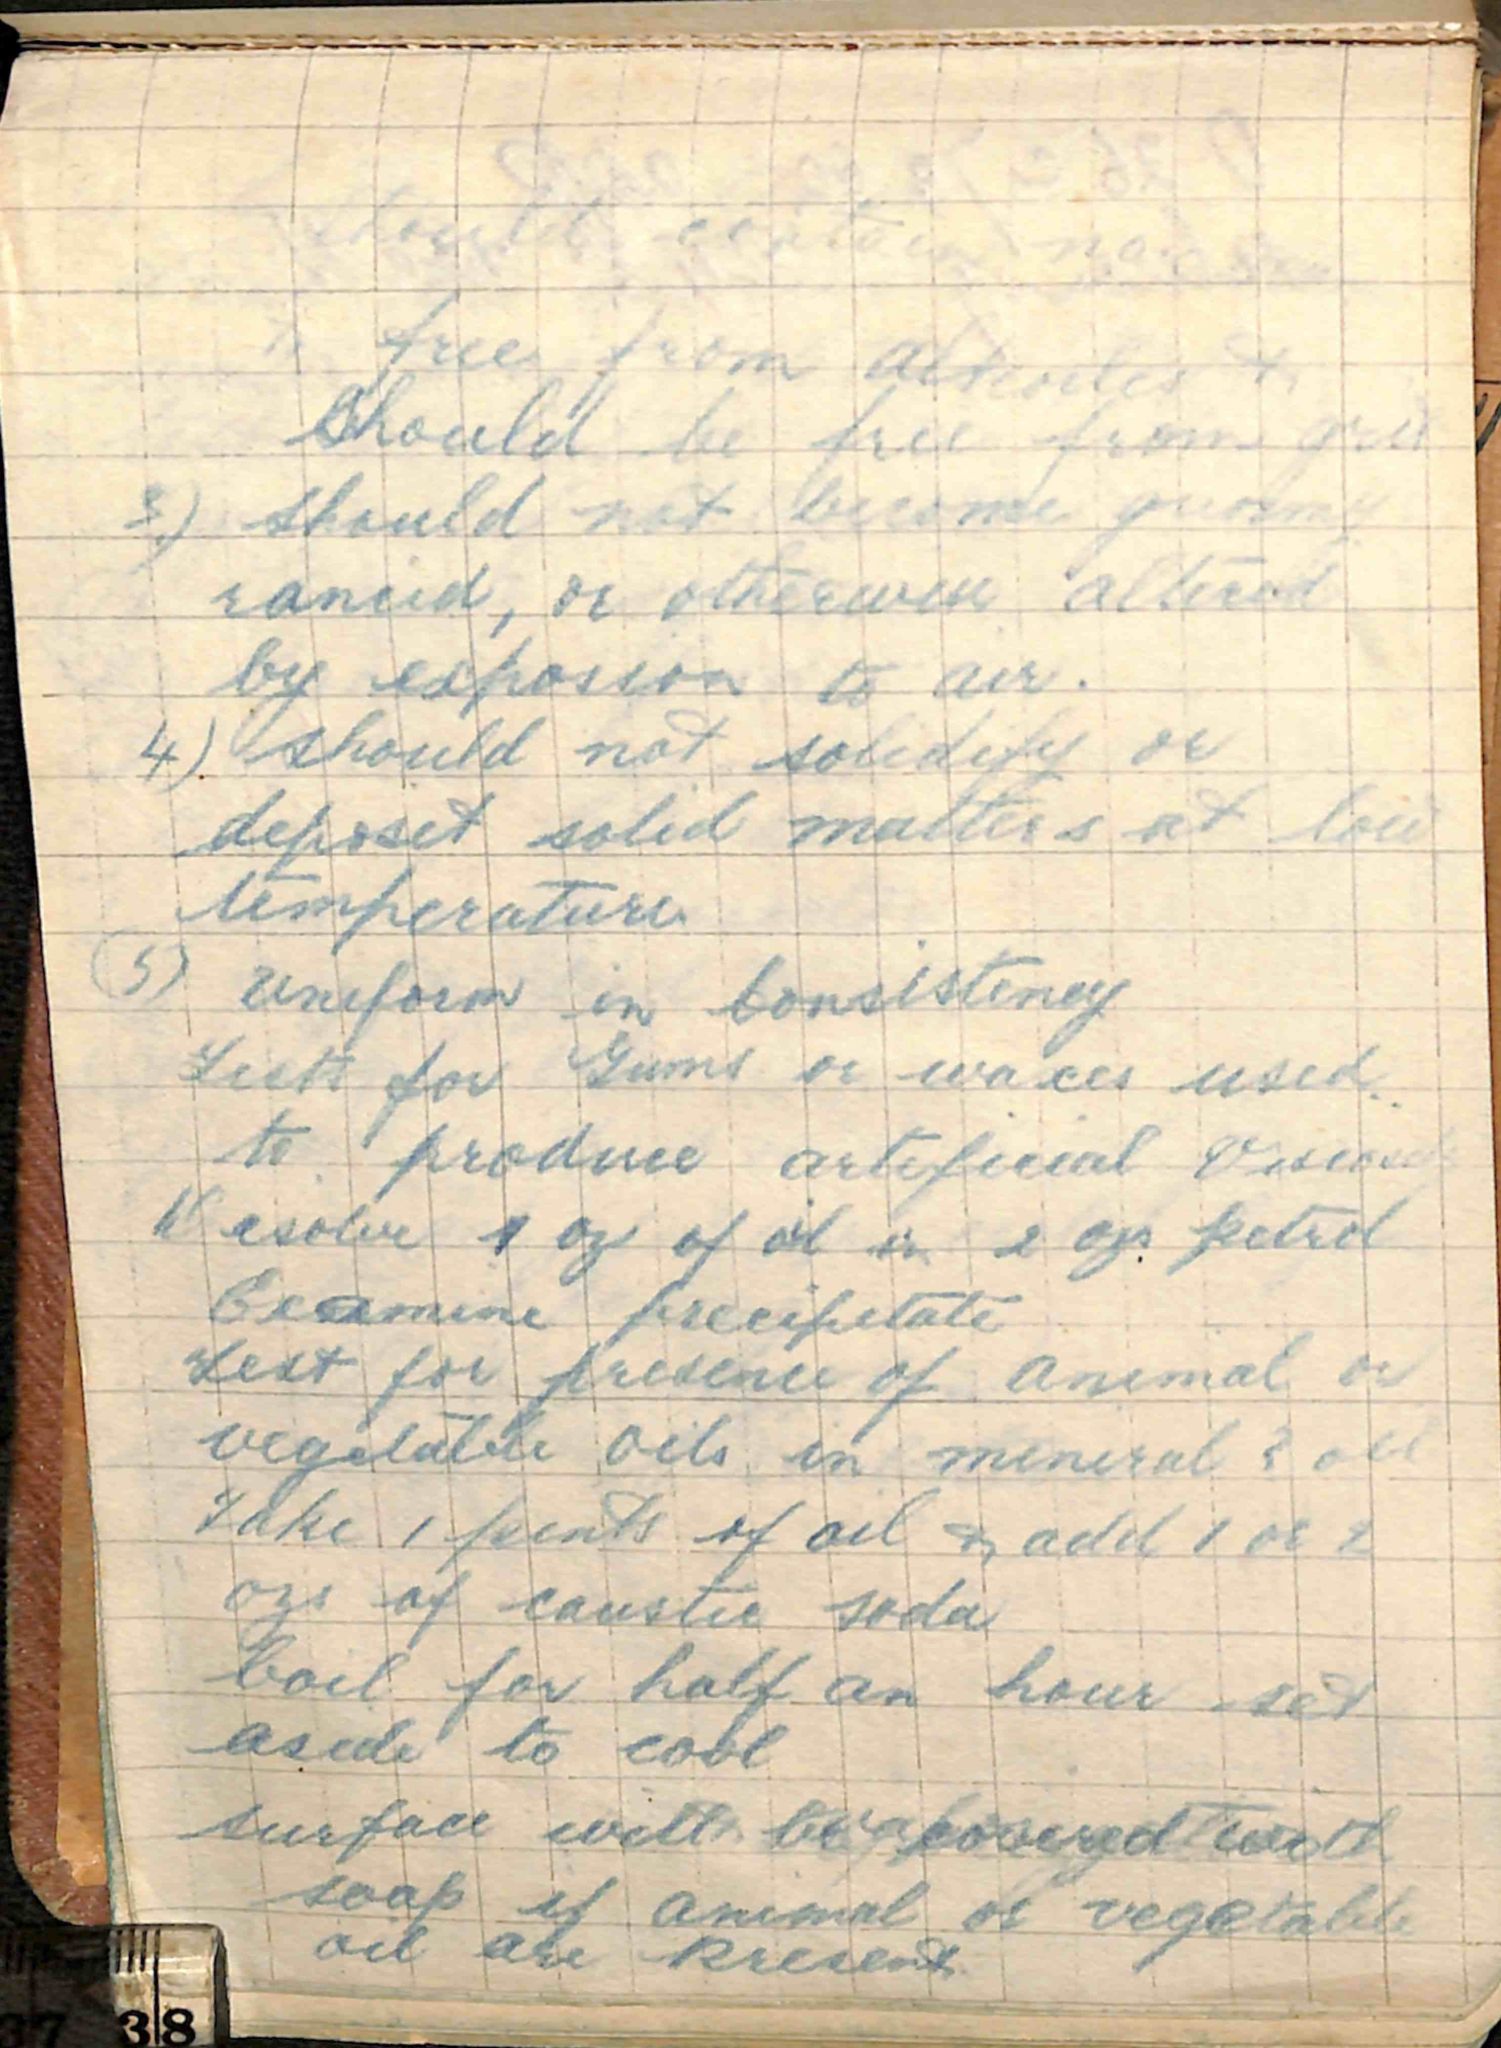 should contain no
& free from alkalies &
Should be free from grit
3) should not become gummy
rancid, or otherwise altered
by exposion to air.
4) should not solidify or
deposit solid matters at low
temperature
5) Uniform in Consistency
Tests for Gums or waxes used
to produce arteficial Viscosity
Desolve 1 oz of oil in 2 ozs petrol
Examine precipitate
Test for presence of animal or
vegetable oils in mineral oil
Take 1 pints of oil & add 1 or 2
ozs of caustic soda
boil for half an hour set
aside to cool
surface will be covered with
soap if animal or vegetable
oil are present
38